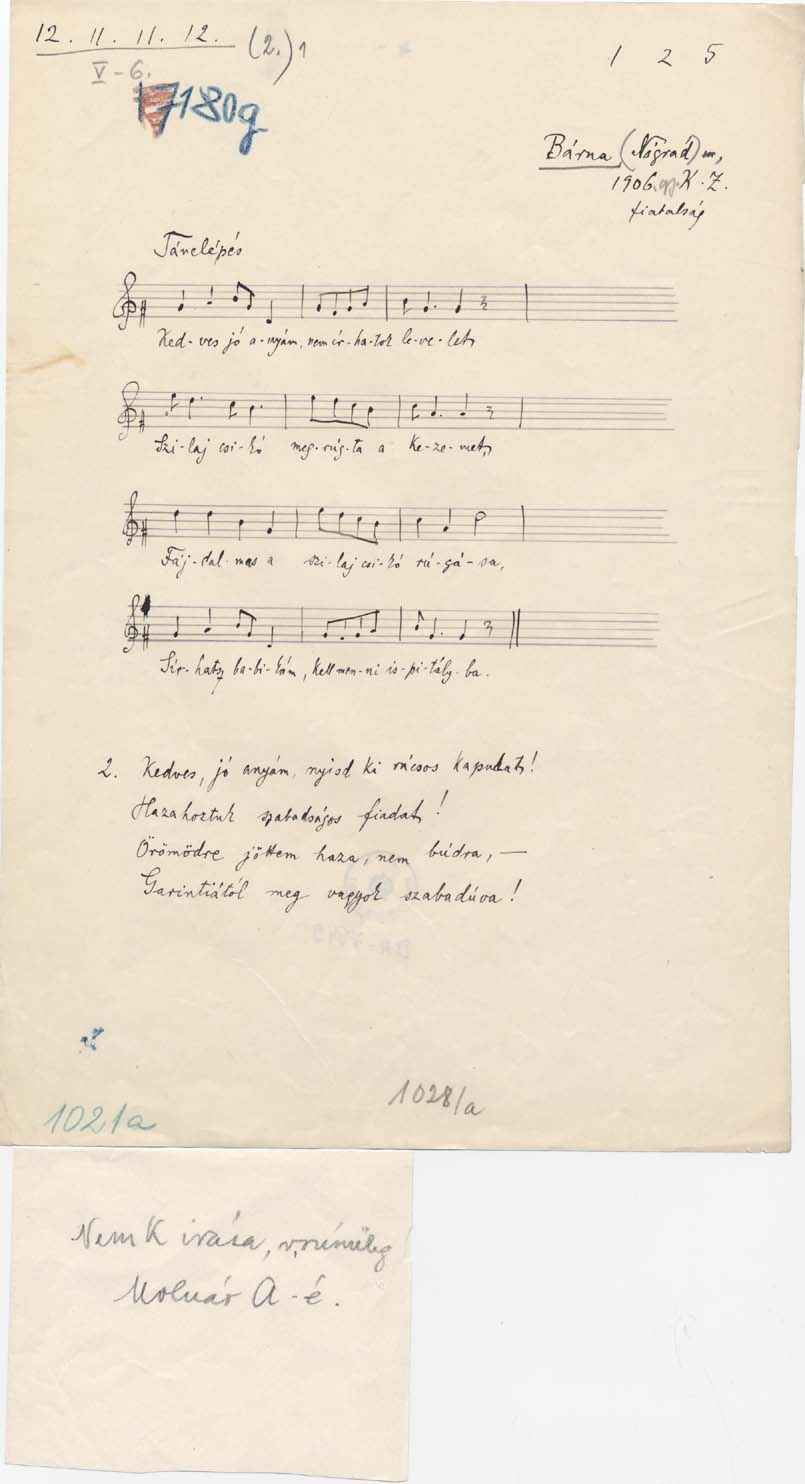 12. 11. 11. 12. (2.) 1
1 2 5
V-6.
17180g
Bárna (Nógrád) m,
1906. gy. K. Z.
fiatalság
Tánclépés
Ked-ves jó a-nyám, nem ír-ha-tok le-ve-let,
Szi-laj csi-kó meg-rúg-ta a ke-ze-met,
Fáj-dal-mas a szi-laj csi-kó rú-gá-sa,
Sír-hatsz ba-bi-kám, kell men-ni is-pi-tály-ba.
2. Kedves, jó anyám, nyisd ki rácsos kapudat!
Hazahoztuk szabadságos fiadat!
Örömödre jöttem haza, nem búdra, —
Garintiától meg vagyok szabadúva!
1028/a
1021a
Nem K irása, v.színüleg
Molnár A-é.